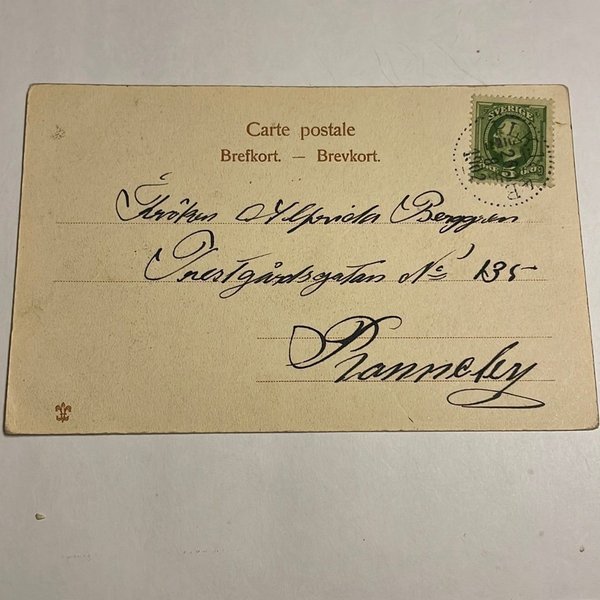 Carte postale
Brefkort. — Brevkort.
SVERIGE
5
Fröken Alfrida Berggren
Prestgårdsgatan No 135
Ronneby